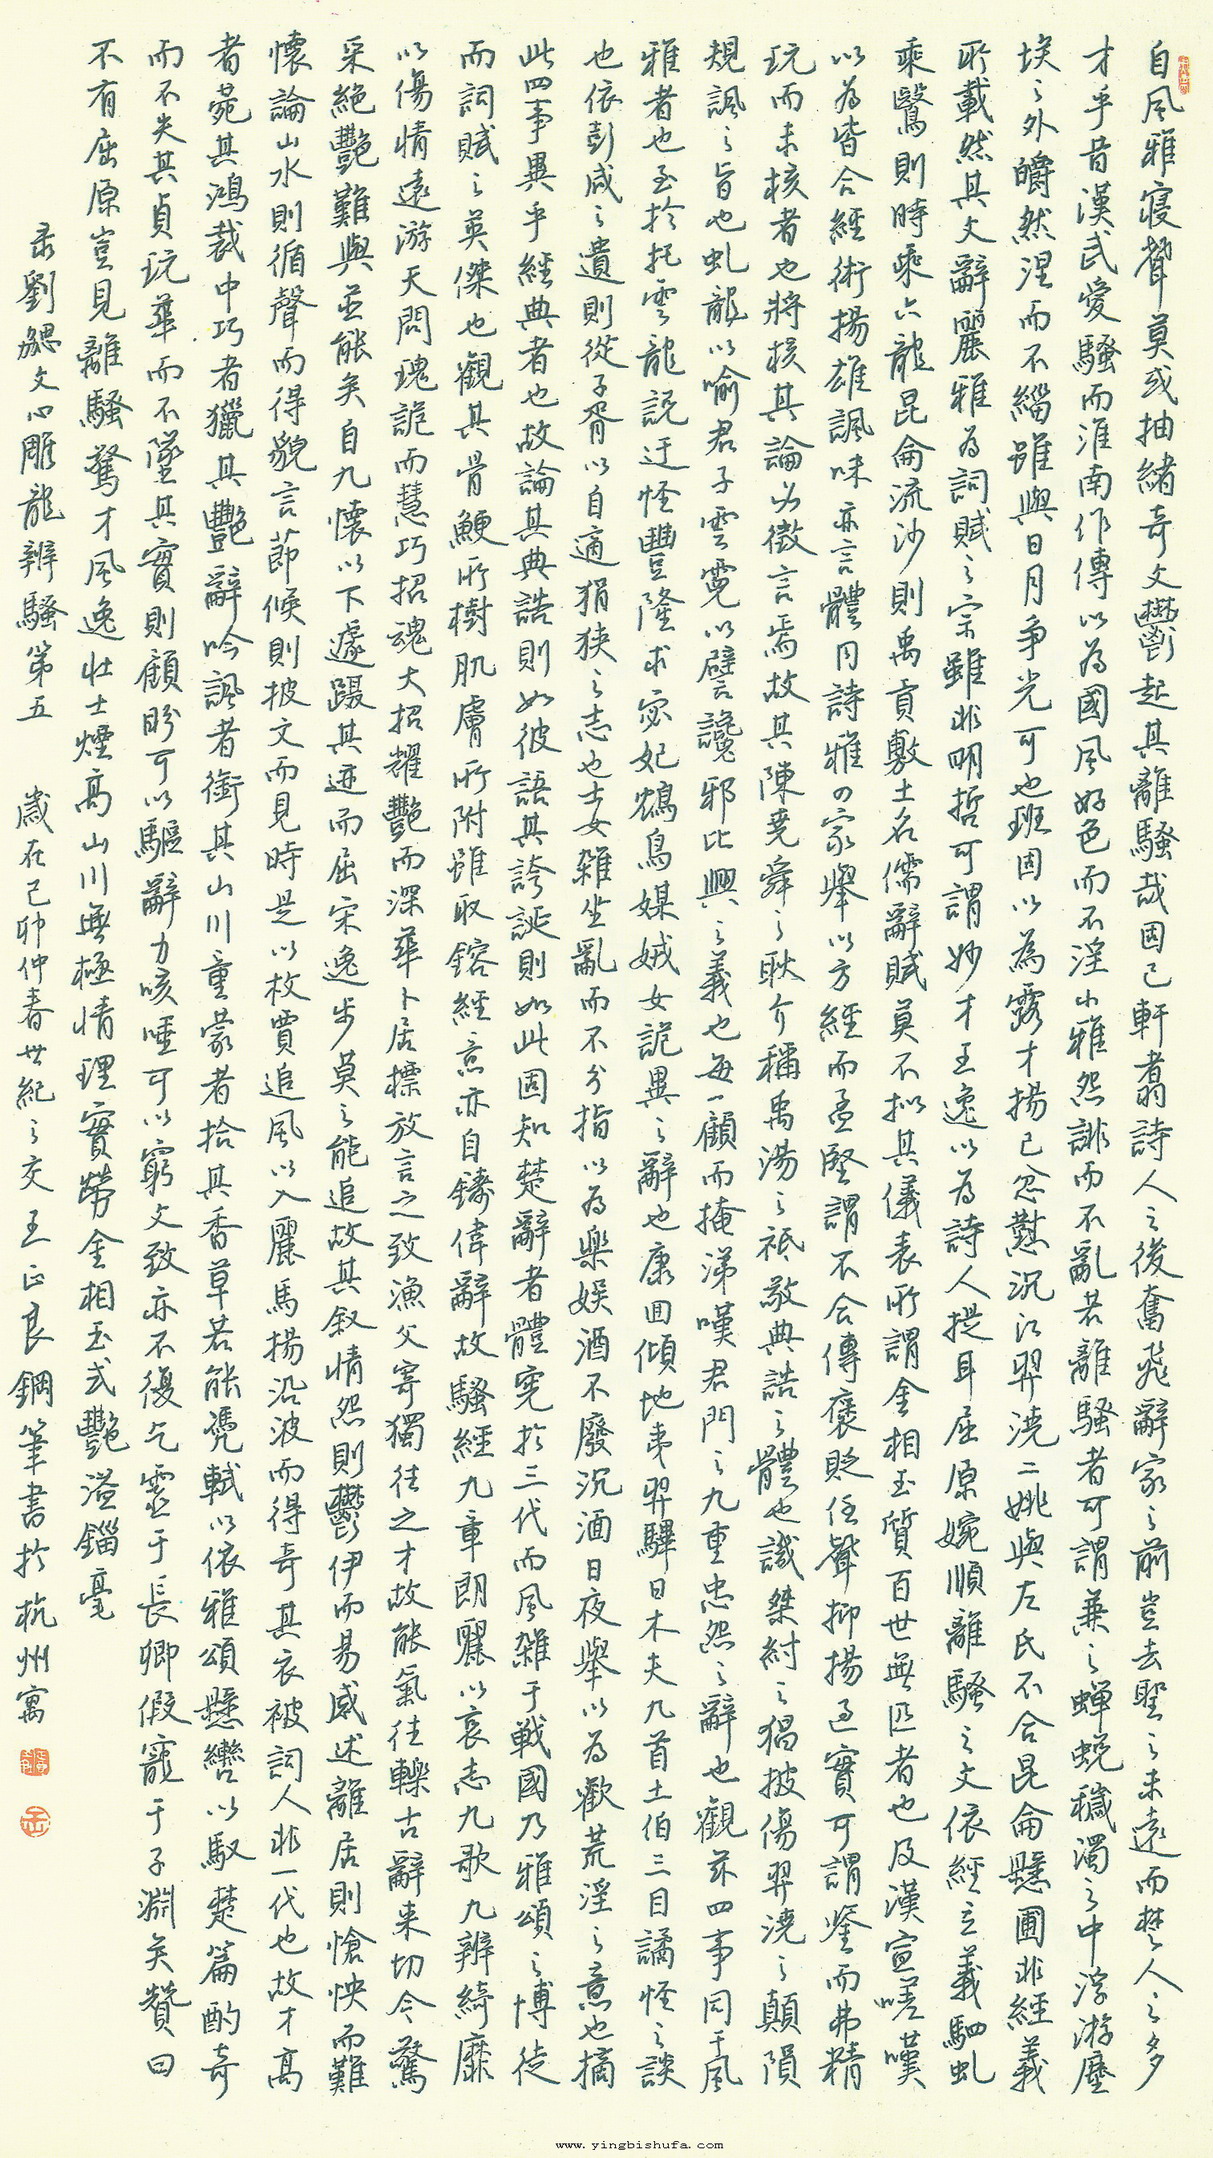 自風雅寢聲莫或抽緒奇文鬱起其離騷哉固已軒翥詩人之後奮飛辭家之前豈去聖之未遠而楚人之多
才乎昔漢武愛騷而淮南作傳以為國風好色而不淫小雅怨誹而不亂若離騷者可謂兼之蟬蛻穢濁之中浮游塵
埃之外皭然涅而不緇雖與日月爭光可也班固以為露才揚己忿懟沉江羿澆二姚與左氏不合昆侖懸圃非經義
所載然其文辭麗雅為詞賦之宗雖非明哲可謂妙才王逸以為詩人提耳屈原婉順離騷之文依經立義駟虬
乘鷖則時乘六龍昆侖流沙則禹貢敷土名儒辭賦莫不擬其儀表所謂金相玉質百世無匹者也及漢宣嗟嘆
以為皆合經術揚雄諷味亦言體同詩雅四家舉以方經而孟堅謂不合傳褒貶任聲抑揚過實可謂鑒而弗精
玩而未核者也將核其論必徵言焉故其陳堯舜之耿介稱禹湯之祗敬典誥之體也譏桀紂之猖披傷羿澆之顛隕
規諷之旨也虬龍以喻君子雲霓以譬讒邪比興之義也每一顧而掩涕嘆君門之九重忠怨之辭也觀茲四事同于風
雅者也至於托雲龍說迂怪豐隆求宓妃鴆鳥媒娀女詭異之辭也康回傾地夷羿彃日木夫九首土伯三目譎怪之談
也依彭咸之遺則從子胥以自適狷狹之志也士女雜坐亂而不分指以為樂娛酒不廢沉湎日夜舉以為歡荒淫之意也摘
此四事異乎經典者也故論其典誥則如彼語其誇誕則如此固知楚辭者體憲於三代而風雜于戰國乃雅頌之博徒
而詞賦之英傑也觀其骨鯁所樹肌膚所附雖取鎔經意亦自鑄偉辭故騷經九章朗麗以哀志九歌九辨綺靡
以傷情遠游天問瑰詭而慧巧招魂大招耀艷而深華卜居標放言之致漁父寄獨往之才故能氣往轢古辭來切今驚
采絕艷難與並能矣自九懷以下遽躡其迹而屈宋逸步莫之能追故其叙情怨則鬱伊而易感述離居則愴怏而難
懷論山水則循聲而得貌言節候則披文而見時是以枚賈追風以入麗馬揚沿波而得奇其衣被詞人非一代也故才高
者菀其鴻裁中巧者獵其艷辭吟諷者銜其山川童蒙者拾其香草若能憑軾以依雅頌懸轡以馭楚篇酌奇
而不失其貞玩華而不墜其實則顧盼可以驅辭力咳唾可以窮文致亦不復乞靈于長卿假寵于子淵矣贊曰
不有屈原豈見離騷驚才風逸壯士煙高山川無極情理實勞金相玉式艷溢錙毫
录劉勰文心雕龍辨騷第五 歲在己卯仲春世紀之交王正良鋼筆書於杭州寓
www.yingbishufa.com